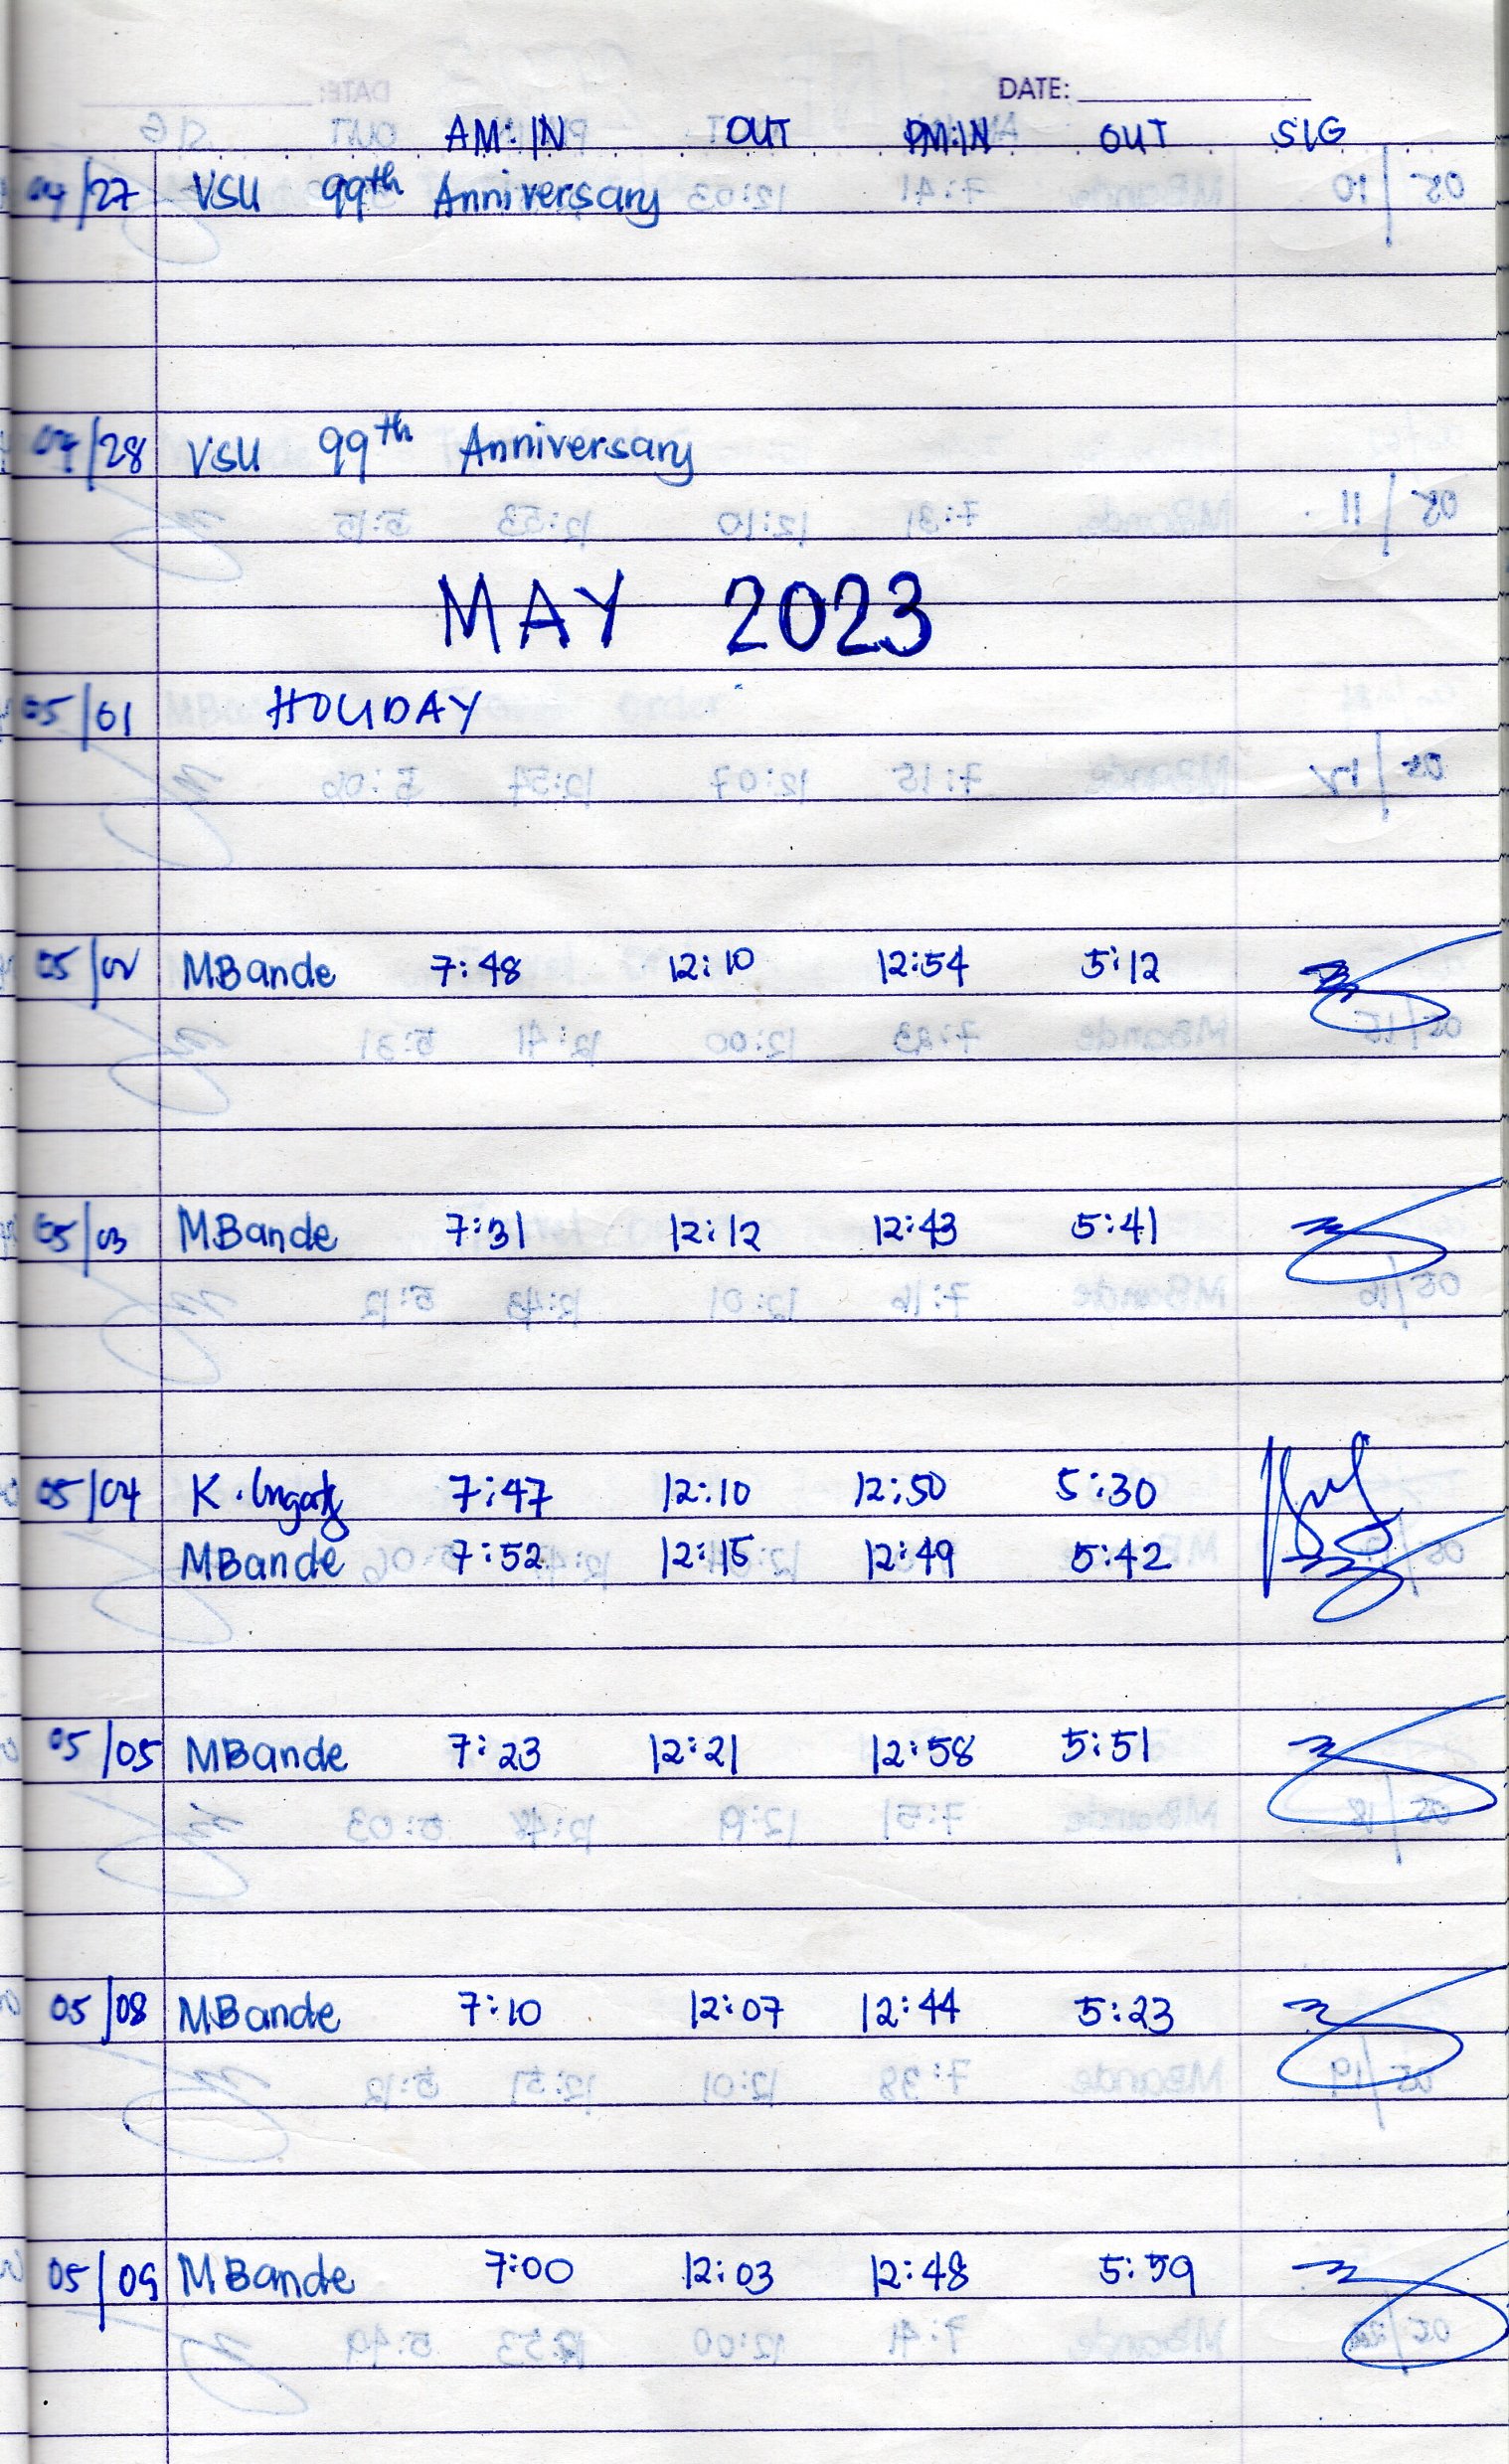 DATE:
AM:IN OUT PM:IN OUT SIG
04/27 VSU 99th Anniversary
04/28 VSU 99th Anniversary
MAY 2023
05/01 HOLIDAY
05/02 MBande 7:48 12:10 12:54 5:12
05/03 MBande 7:31 12:12 12:43 5:41
05/04 K. 7:47 12:10 12:50 5:30
MBande 7:52 12:15 12:49 5:42
05/05 MBande 7:23 12:21 12:58 5:51
05/08 MBande 7:10 12:07 12:44 5:23
05/09 MBande 7:00 12:03 12:48 5:59